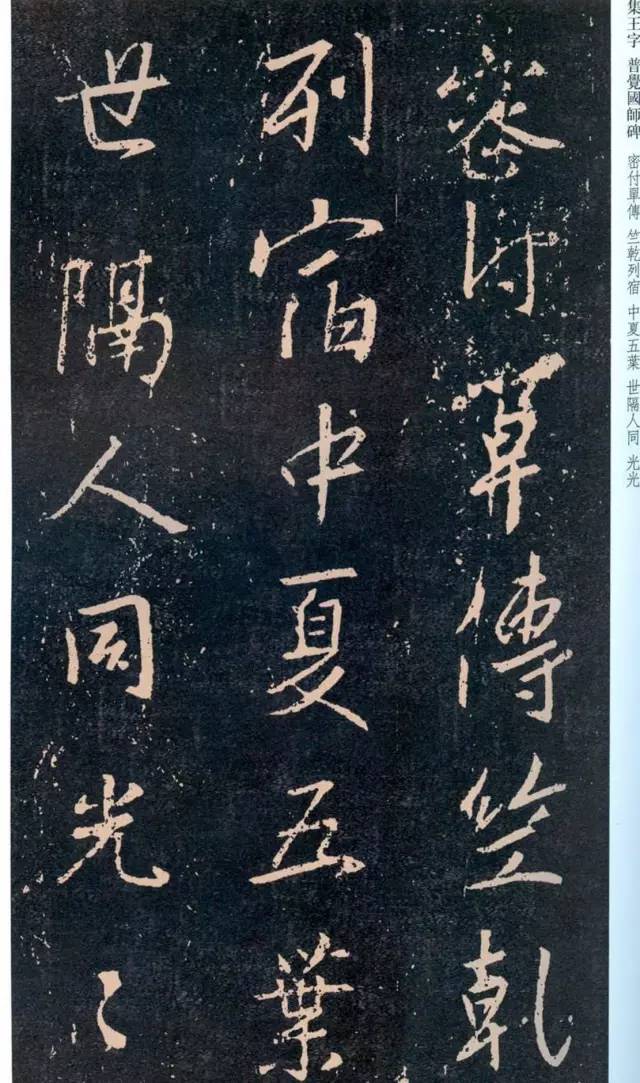 集王字 普覺國師碑 密付單傳 竺乾列宿 中夏五葉 世隔人同 光光
密付單傳竺乾
列宿中夏五葉
世隔人同光〻